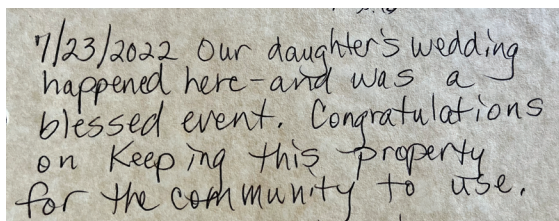 7/23/2022 Our daughter's wedding
happened here - and was a
blessed event. Congratulations
on Keeping this property
for the community to use.